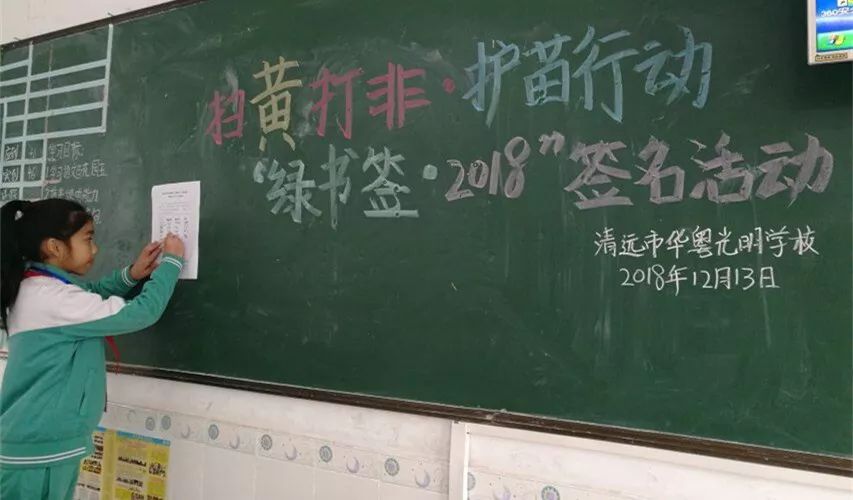 扫黄打非·护苗行动
“绿书签·2018”签名活动
清远市华粤光明学校
2018年12月13日
学习目标: